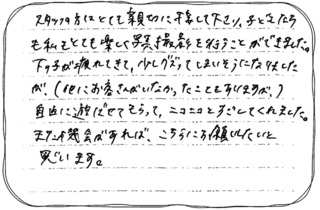 スタッフの方にとても親切に接して下さり、子どもたち
も私もとても楽しく写真撮影を行うことができました。
下の子が疲れてきて、少しグズってしまいそうになりました
が、(他にお客さんがいなかったこともありますが、)
自由に遊ばせてもらって、ニコニコとすごしてくれました。
また機会があれば、こちらにお願いしたいと
思います。